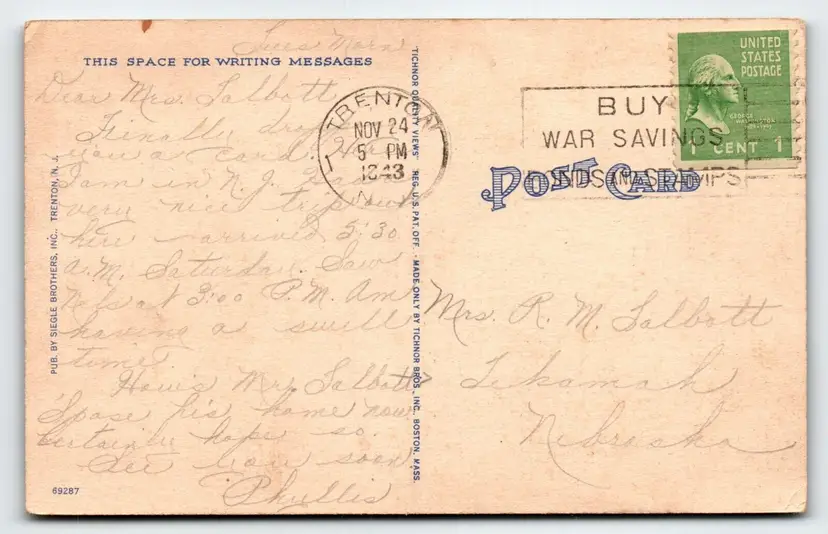 Tues Morn
THIS SPACE FOR WRITING MESSAGES
Dear Mrs. Talbott
Finally drop
you a card. Here
I am in N. J. Had a
very nice trip out
here - arrived 5:30
a.M. Saturday. Saw
at 3:00 P.M. Am
having a swell
time.
How's Mr. Talbott
S'pose he's home now
Certainly hope so.
See you soon
Phyllis
69287
PUB. BY SIEGLE BROTHERS, INC., TRENTON, N. J.
"TICHNOR QUALITY VIEWS" REG. U. S. PAT. OFF. - MADE ONLY BY TICHNOR BROS., INC., BOSTON, MASS.
TRENTON
NOV 24
5 PM
1943
N.J.
BUY
WAR SAVINGS
BONDS AND STAMPS
UNITED
STATES
POSTAGE
GEORGE
WASHINGTON
1 CENT 1
POST CARD
Mrs. R. M. Talbott
Tekamah
Nebraska